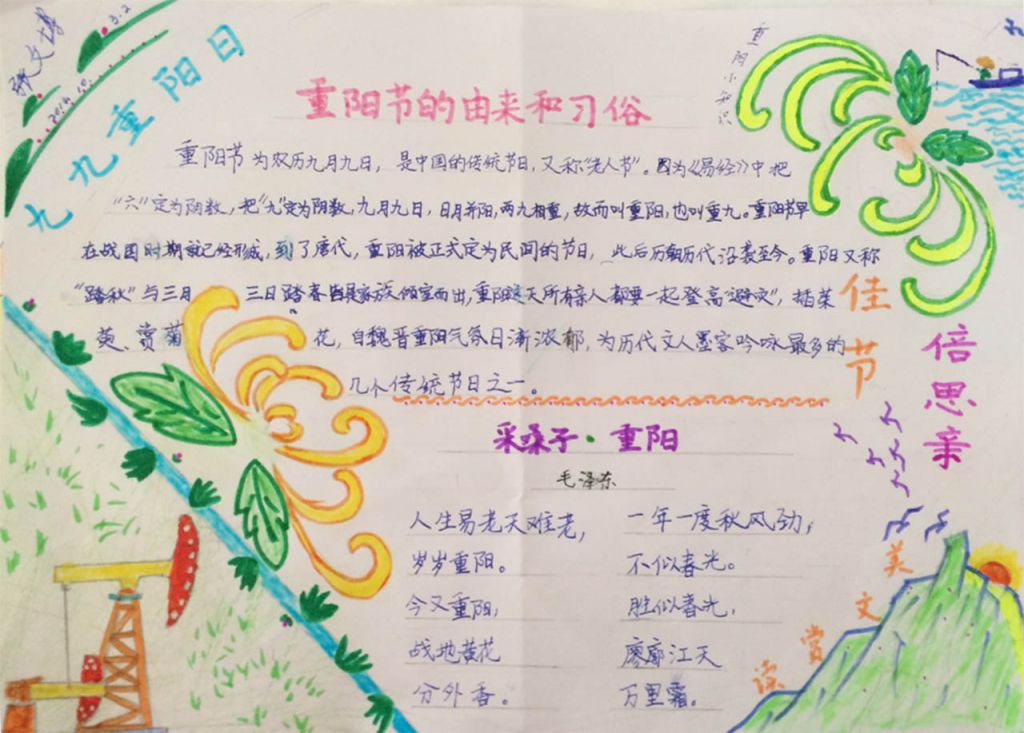 张文博 3.2
2014.10.
九九重阳日
重阳小知识
重阳节的由来和习俗
重阳节为农历九月九日，是中国的传统节日，又称“老人节”。因为《易经》中把
“六”定为阴数，把“九”定为阴数，九月九日，日月并阳，两九相重，故而叫重阳，也叫重九。重阳节早
在战国时期就已经形成，到了唐代，重阳被正式定为民间的节日，此后历朝历代沿袭至今。重阳又称
“踏秋”与三月三日踏春皆是家族倾室而出，重阳这天所有亲人都要一起登高“避灾”，插茱
萸、赏菊花，自魏晋重阳气氛日渐浓郁，为历代文人墨客吟咏最多的
几个传统节日之一。
佳节
倍思亲
采桑子·重阳
毛泽东
人生易老天难老，
岁岁重阳。
今又重阳，
战地黄花
分外香。
一年一度秋风劲，
不似春光。
胜似春光，
廖廓江天
万里霜。
美文赏读